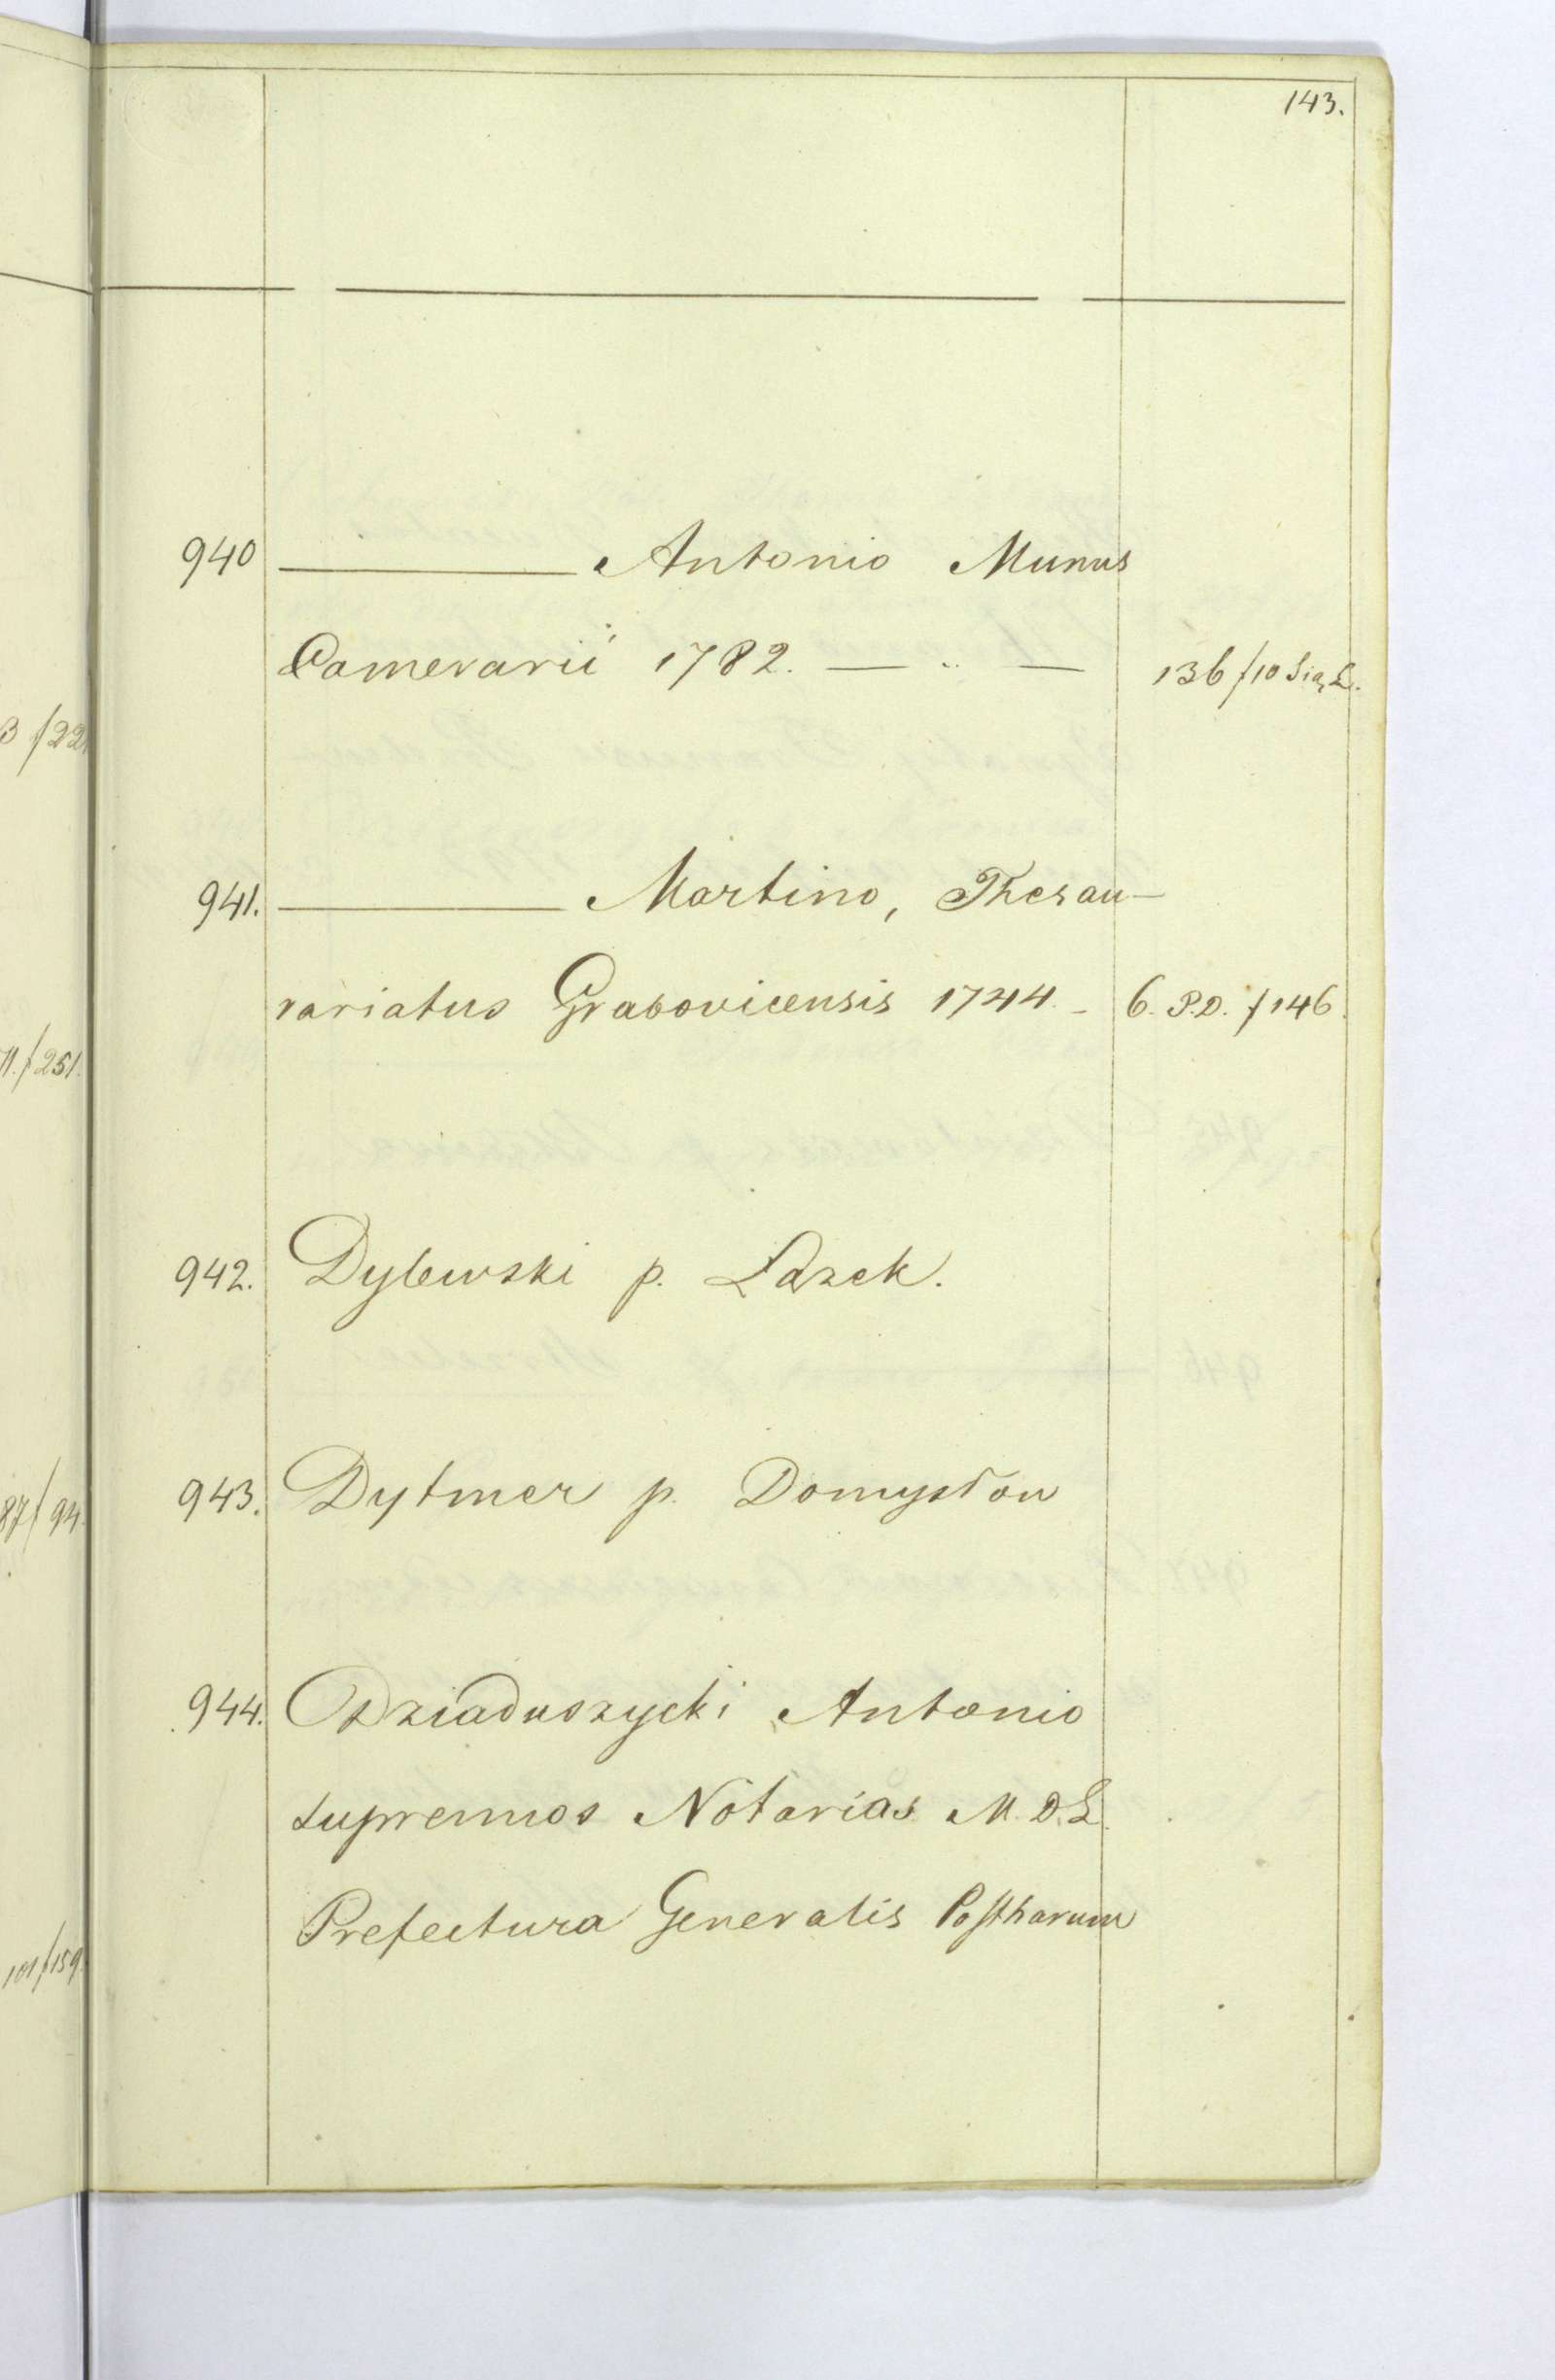 143.
940 ——— Antonio Munus
Camerarii 1782. — " — 136 f 10 Sig. L.
941. ——— Martino, Thesau-
rariatus Grabovicensis 1744. - 6. P.D. f 146.
942. Dylewski p. Lasek.
943. Dytmer p. Domysłow
944. Dziaduszycki Antonio
supremos Notarias M.D.L.
Prefectura Generalis Postharum
3 f 22
11. f 251.
87 f 94.
101 f 159.